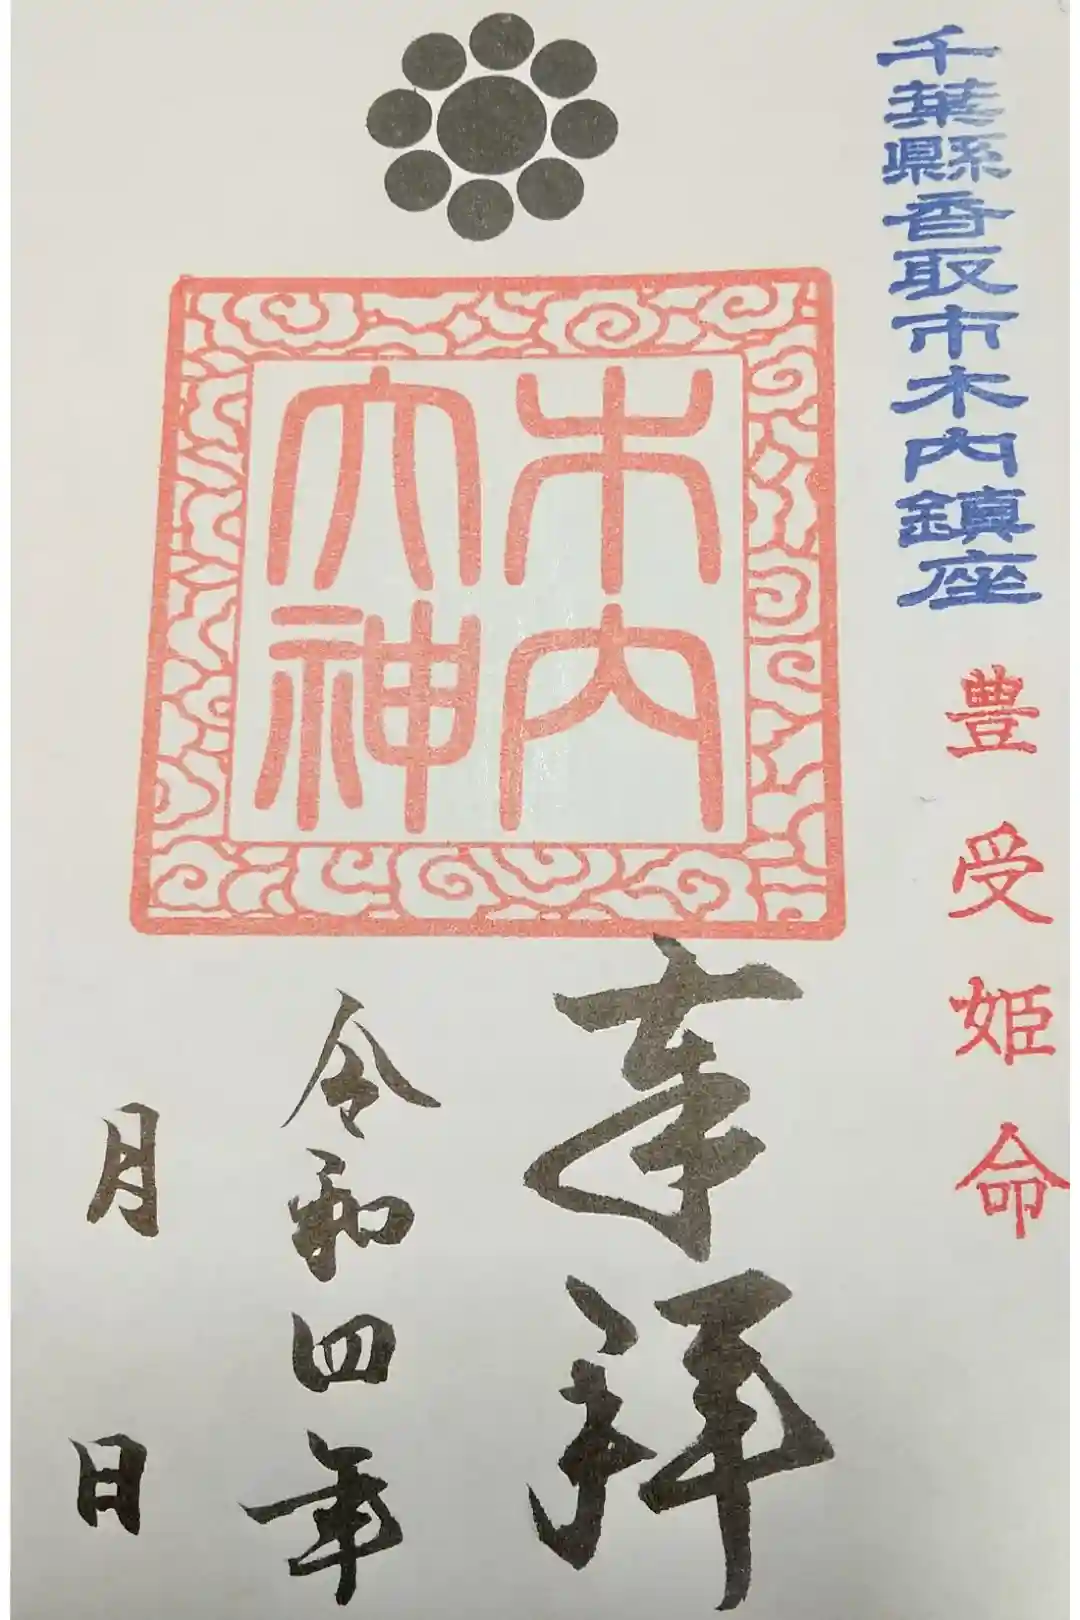 千葉縣香取市木内鎮座
豊受姫命
木内
大神
奉拝
令和四年
月日